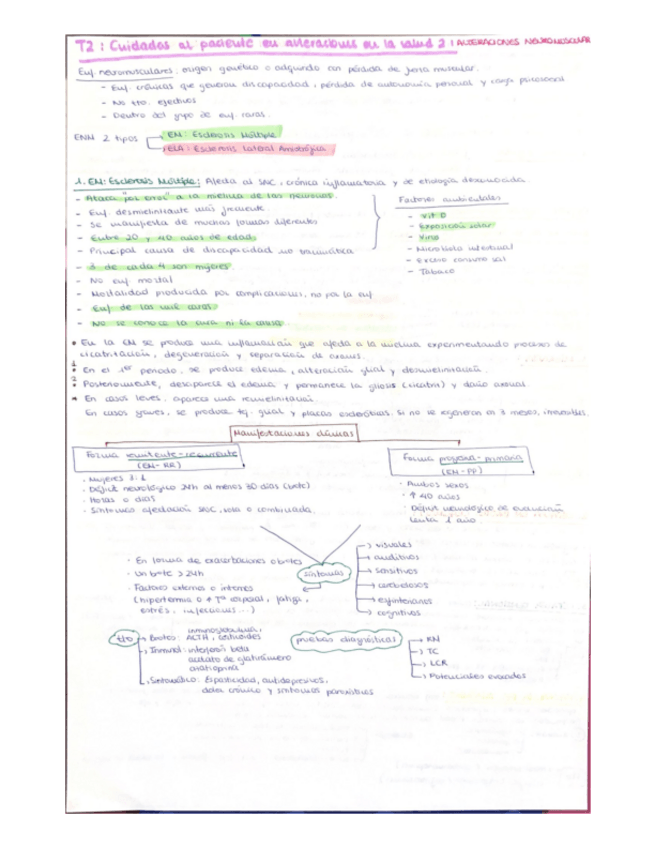 T2: Cuidados al paciente en alteraciones en la salud 2: ALTERACIONES NEUROMUSCULAR
Enf. neuromusculares: origen genético o adquirido con pérdida de fuerza muscular.
- Enf. crónicas que generan discapacidad, pérdida de autonomía personal y carga psicosocial
- No tto. efectivos
- Dentro del grupo de enf. raras.
ENM 2 tipos
EM: Esclerosis Múltiple
ELA: Esclerosis Lateral Amiotrófica
1. EM: Esclerosis Múltiple: Afecta al SNC, crónica inflamatoria y de etiología desconocida.
- Ataca "por error" a la mielina de las neuronas.
- Enf. desmielinizante más frecuente
- Se manifiesta de muchas formas diferentes
- Entre 20 y 40 años de edad.
- Principal causa de discapacidad no traumática
- 3 de cada 4 son mujeres
- No enf mortal
- Mortalidad producida por complicaciones, no por la enf
- Enf de las mil caras
- No se conoce la cura ni la causa
Factores ambientales
- Vit D
- Exposición solar
- Virus
- Microbiota intestinal
- Exceso consumo sal
- Tabaco
En la EM se produce una inflamación que afecta a la mielina experimentando procesos de
cicatrización, degeneración y reparación de axones.
1. En el 1er periodo, se produce edema, alteración glial y desmielinización.
2. Posteriormente, desaparece el edema y permanece la gliosis (cicatriz) y daño axonal.
En casos leves, aparece una remielinización.
En casos graves, se produce tq. glial y placas escleróticas. Si no se regeneran en 3 meses, irreversibles.
Manifestaciones clínicas
Forma remitente-recurrente
(EM-RR)
- Mujeres 3:1
- Déficit neurológico 24h al menos 30 días (brote)
- Horas o días
- Síntomas afectación SNC, sola o combinada.
Forma progresiva-primaria
(EM-PP)
- Ambos sexos
- ↑ 40 años
- Déficit neurológico de evolución
lenta 1 año
síntomas
- En forma de exacerbaciones o brotes
- Un brote > 24h
- Factores externos o internos
(hipertermia o ↑ Tª corporal, fatiga,
estrés, infecciones...)
visuales
auditivos
sensitivos
cerebelosos
esfinterianos
cognitivos
tto
Brotes: inmunoglobulina,
ACTH, corticoides
Inmunol: interferón beta
acetato de glatirámero
azatioprina
Sintomático: Espasticidad, antidepresivos,
dolor crónico y síntomas paroxísticos
pruebas diagnósticas
RN
TC
LCR
Potenciales evocados